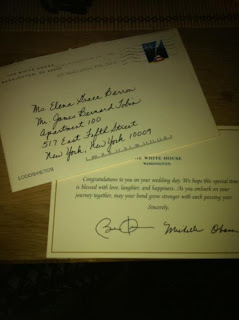 THE WHITE HOUSE
WASHINGTON, DC 20500
Ms. Elena Grace
Mr. James Bernard Tobin
Apartment 100
517 East Fifth Street
New York, New York 10009
THE WHITE HOUSE
WASHINGTON
Congratulations to you on your wedding day. We hope this special time
is blessed with love, laughter, and happiness. As you embark on your
journey together, may your bond grow stronger with each passing year.
Sincerely,
Michelle Obama